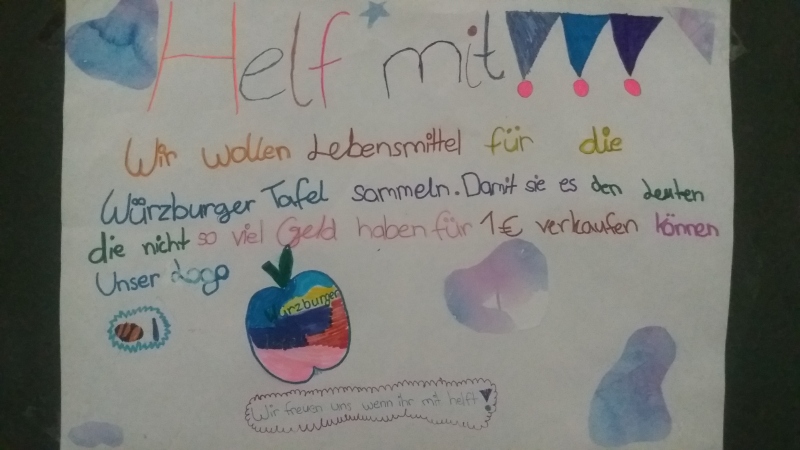 Helf mit!!!
Wir wollen Lebensmittel für die
Würzburger Tafel sammeln. Damit sie es den Leuten
die nicht so viel Geld haben für 1€ verkaufen können
Unser Logo
Würzburger
Wir freuen uns wenn ihr mit helft!